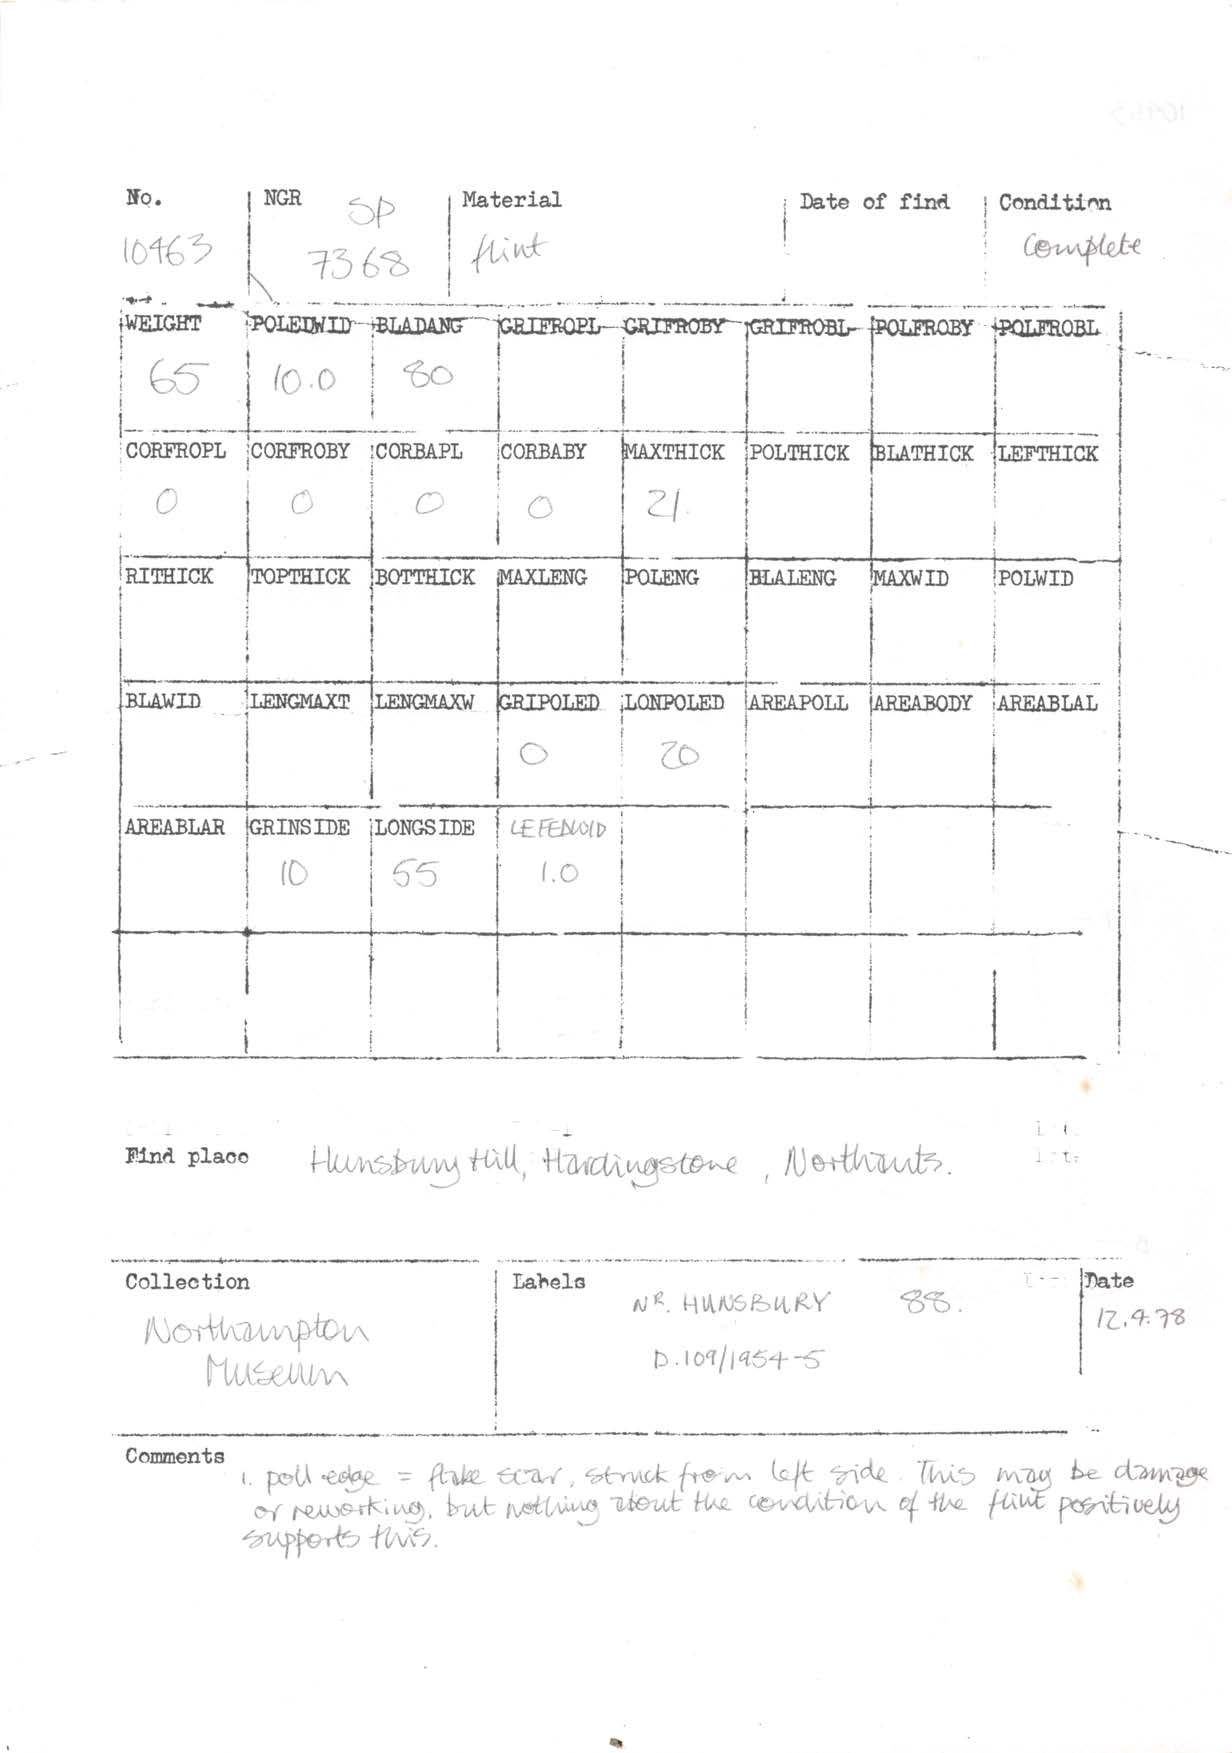 No. NGR SP Material Date of find Condition
10463 7368 flint Complete
WEIGHT POLEDWID BLADANG GRIFROPL GRIFROBY GRIFROBL POLFROBY POLFROBL
65 10.0 80
CORFROPL CORFROBY CORBAPL CORBABY MAXTHICK POLTHICK BLATHICK LEFTHICK
0 0 0 0 21
RITHICK TOPTHICK BOTTHICK MAXLENG POLENG BLALENG MAXWID POLWID
BLAWID LENGMAXT LENGMAXW GRIPOLED LONPOLED AREAPOLL AREABODY AREABLAL
0 20
AREABLAR GRINSIDE LONGSIDE LEFEDWID
10 55 1.0
Find place Hunsbury Hill, Hardingstone, Northants.
Collection Labels Date
NR. HUNSBURY 88. 12.4.78
Northampton
Museum D.109/1954-5
Comments
1. poll edge = flake scar, struck from left side. This may be damage
or reworking, but nothing about the condition of the flint positively
supports this.